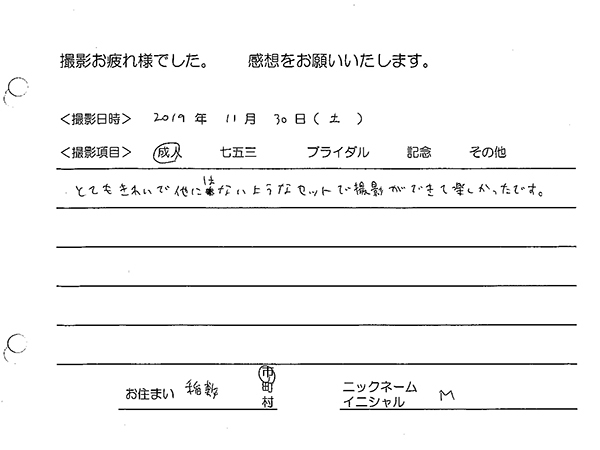 撮影お疲れ様でした。 感想をお願いいたします。
<撮影日時> 2019 年 11 月 30 日 ( 土 )
<撮影項目> 成人 七五三 ブライダル 記念 その他
とてもきれいで他にはないようなセットで撮影ができて楽しかったです。
お住まい 稲敷 市 町 村 ニックネーム イニシャル M